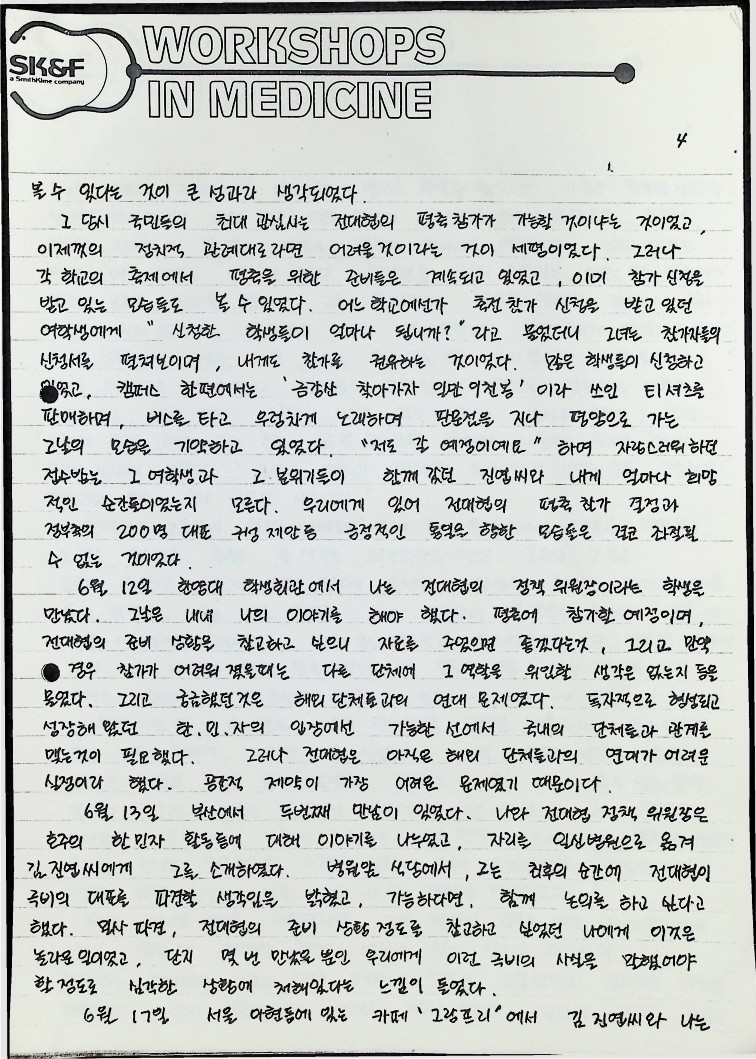 SK&F
a SmithKline company
WORKSHOPS
IN MEDICINE
4
볼 수 있다는 것이 큰 성과라 생각되었다.
그 당시 국민들의 최대 관심사는 전대협의 평축참가가 가능할 것이냐는 것이었고,
이제껏의 정치적 관례대로라면 어려울것이라는 것이 세평이었다. 그러나
각 학교의 축제에서 평축을 위한 준비들은 계속되고 있었고, 이미 참가 신청을
받고 있는 모습들도 볼 수 있었다. 어느 학교에선가 축전 참가 신청을 받고 있던
여학생에게 "신청한 학생들이 얼마나 됩니까?" 라고 물었더니 그녀는 참가자들의
신청서를 펼쳐보이며, 내게도 참가를 권유하는 것이었다. 많은 학생들이 신청하고
있었고, 캠퍼스 한편에서는 '금강산 찾아가자 일만 이천봉' 이라 쓰인 티셔츠를
판매하며, 버스를 타고 우렁차게 노래하며 판문점을 지나 평양으로 가는
그날의 모습을 기약하고 있었다. "저도 갈 예정이예요" 하며 자랑스러워 하던
접수받는 그 여학생과 그 분위기들이 함께 갔던 진엽씨와 내게 얼마나 희망
적인 순간들이었는지 모른다. 우리에게 있어 전대협의 평축 참가 결정과
정부측의 200명 대표 구성 제안등 긍정적인 통일을 향한 모습들은 결코 좌절될
수 없는 것이었다.
6월 12일 한양대 학생회관에서 나는 전대협의 정책 위원장이라는 학생을
만났다. 그날은 내내 나의 이야기를 해야 했다. 평축에 참가할 예정이며,
전대협의 준비 상황을 참고하고 싶으니 자료를 주었으면 좋겠다는것, 그리고 만약
경우 참가가 어려워 졌을때는 다른 단체에 그 역할을 위임할 생각은 없는지 등을
물었다. 그리고 궁금했던것은 해외 단체들과의 연대 문제였다. 독자적으로 형성되고
성장해 왔던 한.민.자의 입장에선 가능한 선에서 국내의 단체들과 관계를
맺는것이 필요했다. 그러나 전대협은 아직은 해외 단체들과의 연대가 어려운
실정이라 했다. 공간적 제약이 가장 어려운 문제였기 때문이다.
6월 13일 부산에서 두번째 만남이 있었다. 나와 전대협 정책 위원장은
호주의 한민자 활동들에 대해 이야기를 나누었고, 자리를 일신병원으로 옮겨
김진엽씨에게 그를 소개하였다. 병원앞 식당에서, 그는 최후의 순간에 전대협이
극비의 대표를 파견할 생각임을 밝혔고, 가능하다면, 함께 논의를 하고 싶다고
했다. 파견, 전대협의 준비 상황 정도를 참고하고 싶었던 나에게 이것은
놀라운일이었고, 단지 몇 번 만났을 뿐인 우리에게 이런 극비의 사실을 말했어야
할 정도로 심각한 상황에 처해있다는 느낌이 들었다.
6월 17일 서울 아현동에 있는 카페 '그랑프리'에서 김진엽씨와 나는